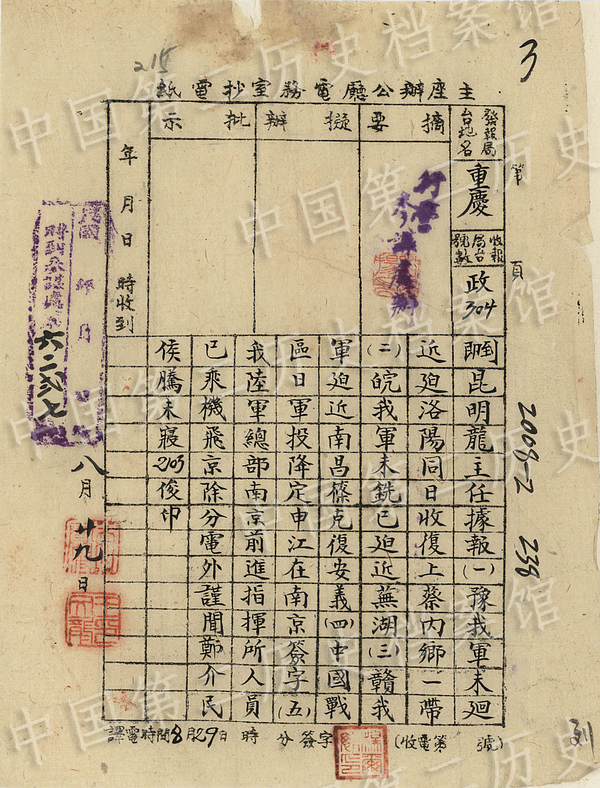 3
215
主座辦公廳電務室抄電紙
第 頁
發報局台地名 重慶
收報局台號數 政304
摘要
擬辦
批示
年 月 日 時收到
即到昆明龍主任據報(一)豫我軍未迴
近迫洛陽同日收復上蔡內鄉一帶
(二)皖我軍未銑已迫近蕪湖(三)贛我
軍迫近南昌篠克復安義(四)中國戰
區日軍投降定申江在南京簽字(五)
我陸軍總部南京前進指揮所人員
已乘機飛京除分電外謹聞鄭介民
侯騰未寢2103俊印
六二弍七
八月廿九日
譯電時間8月29日 時 分簽字
(收電第 號)
2008-2 238
中国第二历史档案馆